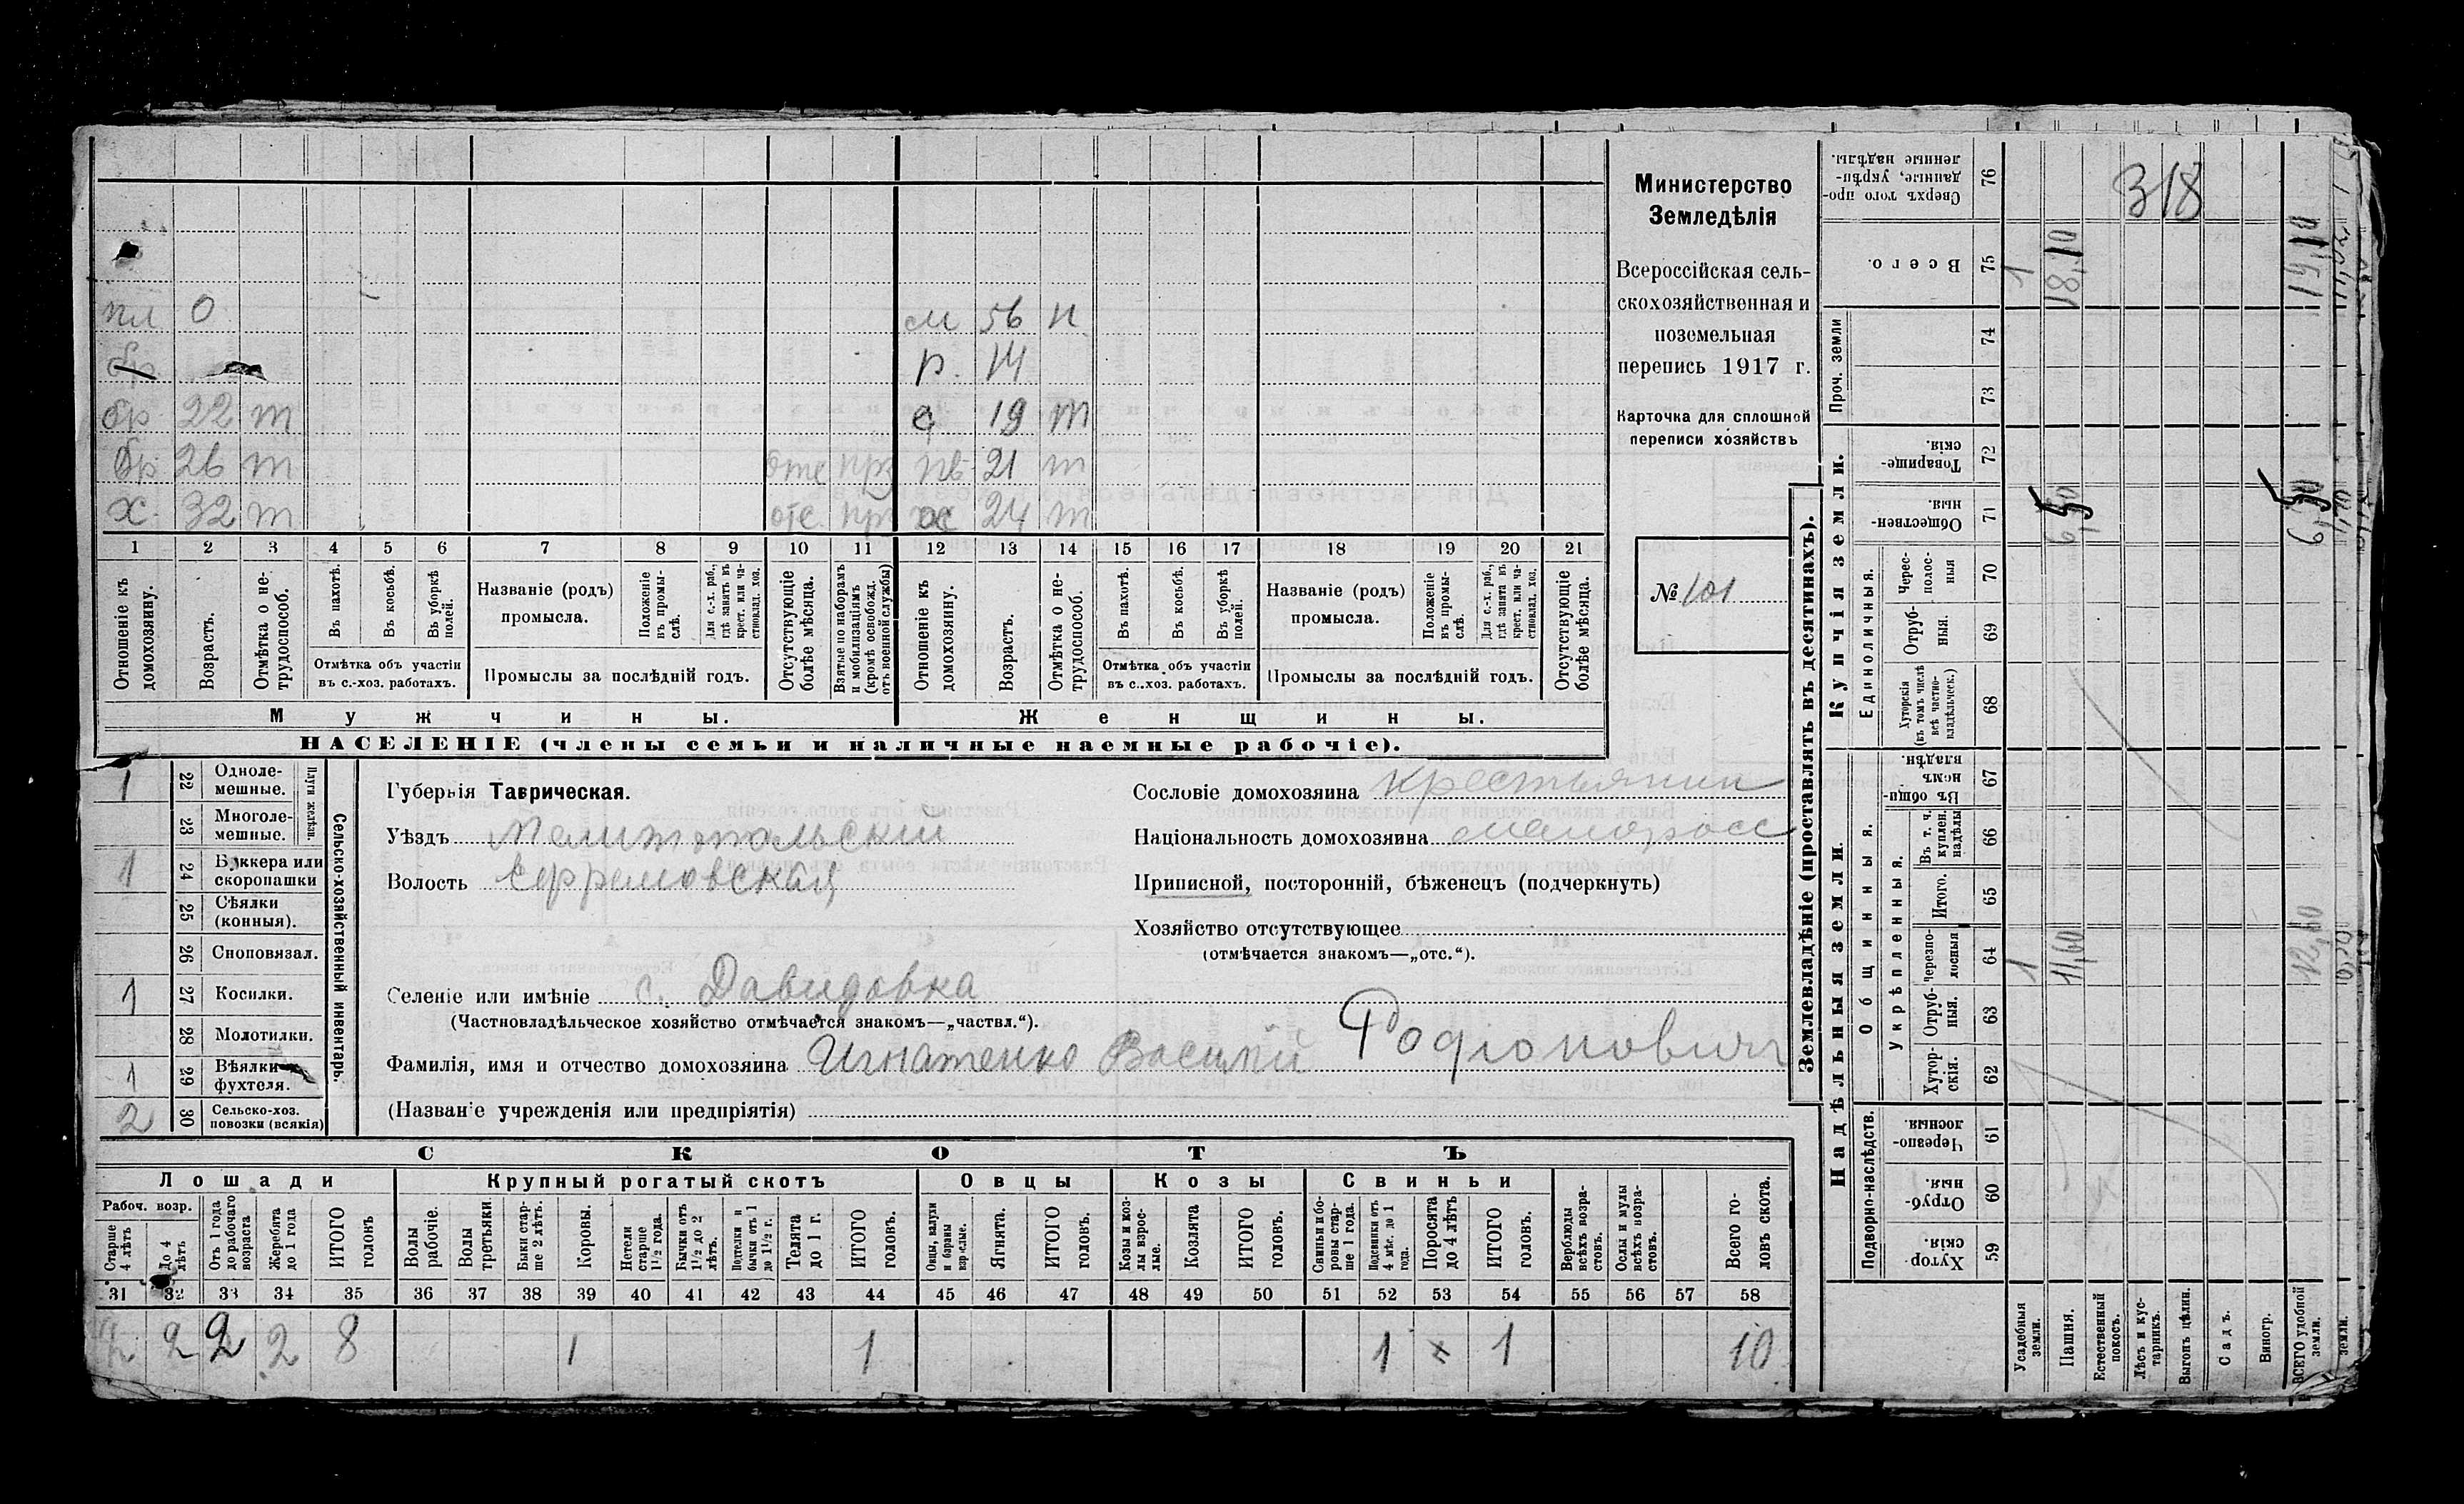 318
пл 0 м 56 н
р. 14
бр 22 т с 19 т
бр 26 т отс 21 т
х. 32 т отс. 24 т
1 2 3 4 5 6 7 8 9 10 11 12 13 14 15 16 17 18 19 20 21
Отношеніе къ домохозяину.
Возрастъ.
Отмѣтка о не-трудоспособ.
Въ пахотѣ.
Въ косьбѣ.
Въ уборкѣ полей.
Отмѣтка объ участіи
въ с.-хоз. работахъ.
Названіе (родъ)
промысла.
Положеніе въ промыслѣ.
Для с.-х. раб., гдѣ занятъ въ крест. или частновлад. хоз.
Промыслы за послѣдній годъ.
Отсутствующіе болѣе мѣсяца.
Взятые по наборамъ и мобилизаціямъ (кромѣ освобожд. отъ военной службы)
Отношеніе къ домохозяину.
Возрастъ.
Отмѣтка о не-трудоспособ.
Въ пахотѣ.
Въ косьбѣ.
Въ уборкѣ полей.
Отмѣтка объ участіи
въ с..хоз. работахъ.
Названіе (родъ)
промысла.
Положеніе въ промыслѣ.
Для с.-х. раб., гдѣ занята въ крест. или частновлад. хоз.
Промыслы за послѣдній годъ.
Отсутствующіе болѣе мѣсяца.
Мужчины. Женщины.
НАСЕЛЕНІЕ (члены семьи и наличные наемные рабочіе).
Министерство
Земледѣлія
Всероссійская сель-
скохозяйственная и
поземельная
перепись 1917 г.
Карточка для сплошной
переписи хозяйствъ
№ 101
Сельско-хозяйственный инвентарь.
Плуги желѣзн.
1 22 Однолемешные.
23 Многолемешные.
1 24 Буккера или скоропашки
25 Сѣялки (конныя).
26 Сноповязал.
1 27 Косилки.
28 Молотилки.
1 29 Вѣялки фухтеля.
2 30 Сельско-хоз. повозки (всякія)
Губернія Таврическая.
Уѣздъ Мелитопольскій
Волость Ефремовская
Селеніе или имѣніе с. Давидовка
(Частновладѣльческое хозяйство отмѣчается знакомъ—„частвл.“).
Фамилія, имя и отчество домохозяина Игнатенко Василій Родіоновичъ
(Названіе учрежденія или предпріятія)
Сословіе домохозяина крестьянин
Національность домохозяина малоросс
Приписной, посторонній, бѣженецъ (подчеркнуть)
Хозяйство отсутствующее
(отмѣчается знакомъ—„отс.“).
СКОТЪ
Лошади Крупный рогатый скотъ Овцы Козы Свиньи
Рабоч. возр.
Старше 4 лѣтъ
До 4 лѣтъ
Отъ 1 года до рабочаго возраста
Жеребята до 1 года
ИТОГО головъ
Волы рабочіе.
Волы третьяки.
Быки старше 2 лѣтъ.
Коровы.
Нетели старше 1½ года.
Бычки отъ 1½ до 2 лѣтъ.
Подтелки и бычки отъ 1 до 1½ г.
Телята до 1 г.
ИТОГО головъ.
Овцы, валухи и бараны взрослые.
Ягнята.
ИТОГО головъ.
Козы и козлы взрослые.
Козлята
ИТОГО головъ.
Свиньи и боровы старше 1 года.
Подсвинки отъ 4 мѣс. до 1 года.
Поросята до 4 лѣтъ
ИТОГО головъ.
Верблюды всѣхъ возрастовъ.
Ослы и мулы всѣхъ возрастовъ.
Всего головъ скота.
31 32 33 34 35 36 37 38 39 40 41 42 43 44 45 46 47 48 49 50 51 52 53 54 55 56 57 58
2 2 2 2 8 1 1 1 х 1 10
Землевладѣніе (проставлять въ десятинахъ).
Надѣльныя земли. Купчія земли. Проч. земли
Подворно-наслѣдств.
Общинныя.
Укрѣпленныя.
Единоличныя.
Хуторскія. 59
Отрубныя. 60
Черезполосныя. 61
Хуторскія. 62
Отрубныя. 63
Черезполосныя 64 1 11,60 12,60
Итого. 65
Въ т. ч. куплен. надѣлы 66
Въ общинномъ владѣн. 67
Хуторскія (въ томъ числѣ всѣ частновладѣльческ.) 68
Отрубныя. 69
Чересполосныя 70
Общественныя 71 6,50 6,50
Товарищескія. 72
73
74
Всего. 75 1 18,10 19,10
Сверхъ того проданные, укрѣпленные надѣлы. 76
Усадебныя земли.
Пашня.
Естественный покосъ.
Лѣсъ и кустарникъ.
Выгонъ цѣлин.
Садъ.
Виногр.
ВСЕГО удобной земли.
земли.